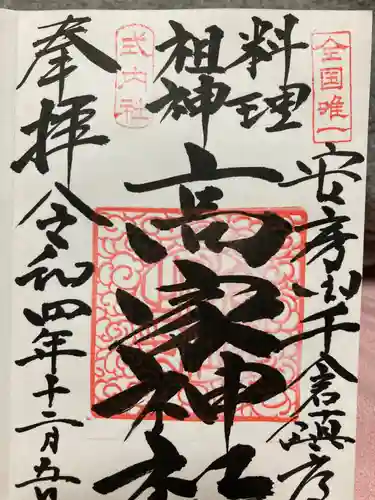 全国唯一
安房国千倉鎮座
料理
祖神
式内社
高家神社
奉拝
令和四年十二月五日